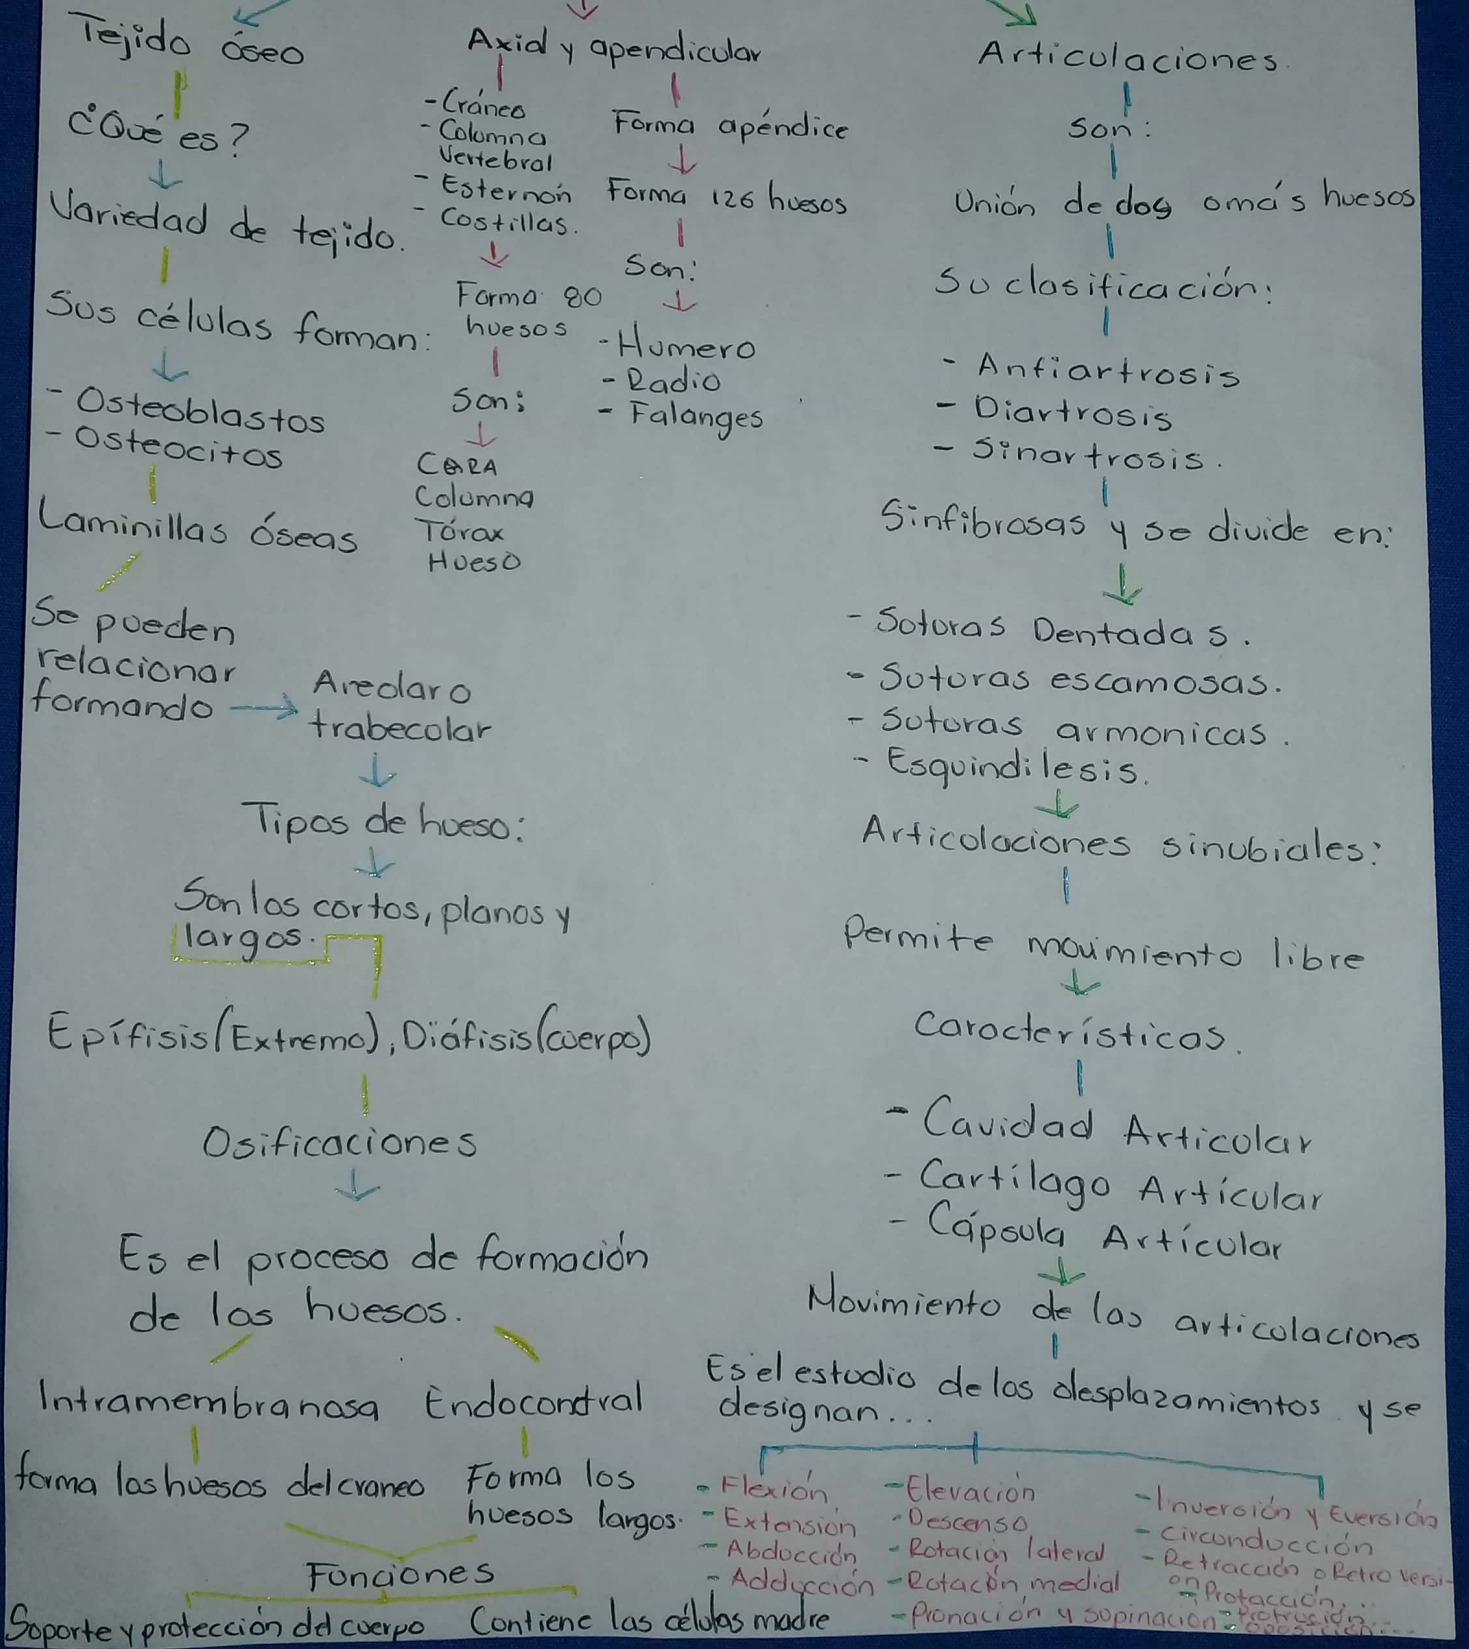 Tejido óseo
¿Qué es?
Variedad de tejido.
Sus células forman:
- Osteoblastos
- Osteocitos
Laminillas óseas
Se pueden
relacionar
formando
Areolar o
trabecolar
Tipos de hueso:
Son los cortos, planos y
largos.
Epífisis (Extremo), Diáfisis (cuerpo)
Osificaciones
Es el proceso de formación
de los huesos.
Intramembranosa
forma los huesos del craneo
Endocondral
Forma los
huesos largos.
Funciones
Soporte y protección del cuerpo
Contiene las células madre
Axial y apendicular
- Cráneo
- Columna
Vertebral
- Esternón
- Costillas.
Forma 80
huesos
Son:
CARA
Columna
Tórax
Hueso
Forma apéndice
Forma 126 huesos
Son:
- Humero
- Radio
- Falanges
Articulaciones.
son:
Unión de dos o más huesos
Su clasificación:
- Anfiartrosis
- Diartrosis
- Sinartrosis.
Sinfibrosas y se divide en:
- Suturas Dentadas.
- Suturas escamosas.
- Suturas armonicas.
- Esquindilesis.
Articulaciones sinubiales:
Permite movimiento libre
Características.
- Cavidad Articular
- Cartílago Artícular
- Cápsula Artícular
Movimiento de las articulaciones
Es el estudio de los desplazamientos y se
designan...
- Flexión
- Extensión
- Abducción
- Adducción
- Elevación
- Descenso
- Rotación lateral
- Rotación medial
- Pronación y supinación
- Inversión y Eversión
- Circonducción
- Retracción o Retroversi-
on
- Protacción...
- Protrusión...
- Oposición...